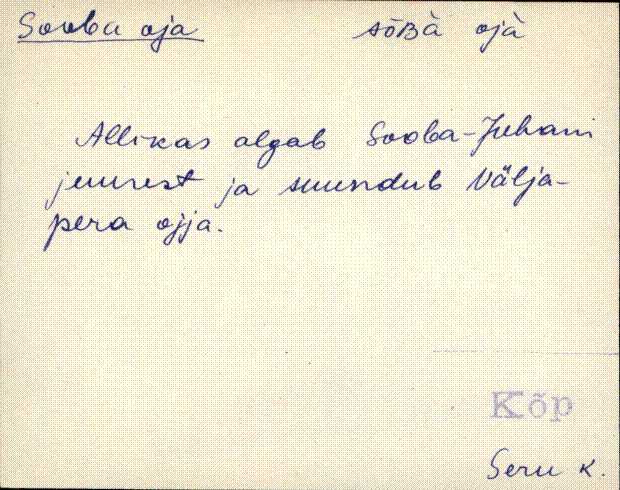 Sooba oja sōʙà ojà
Allikas algab Sooba-Juhani
juurest ja suundub Välja-
pera ojja.
Kõp
Seru k.